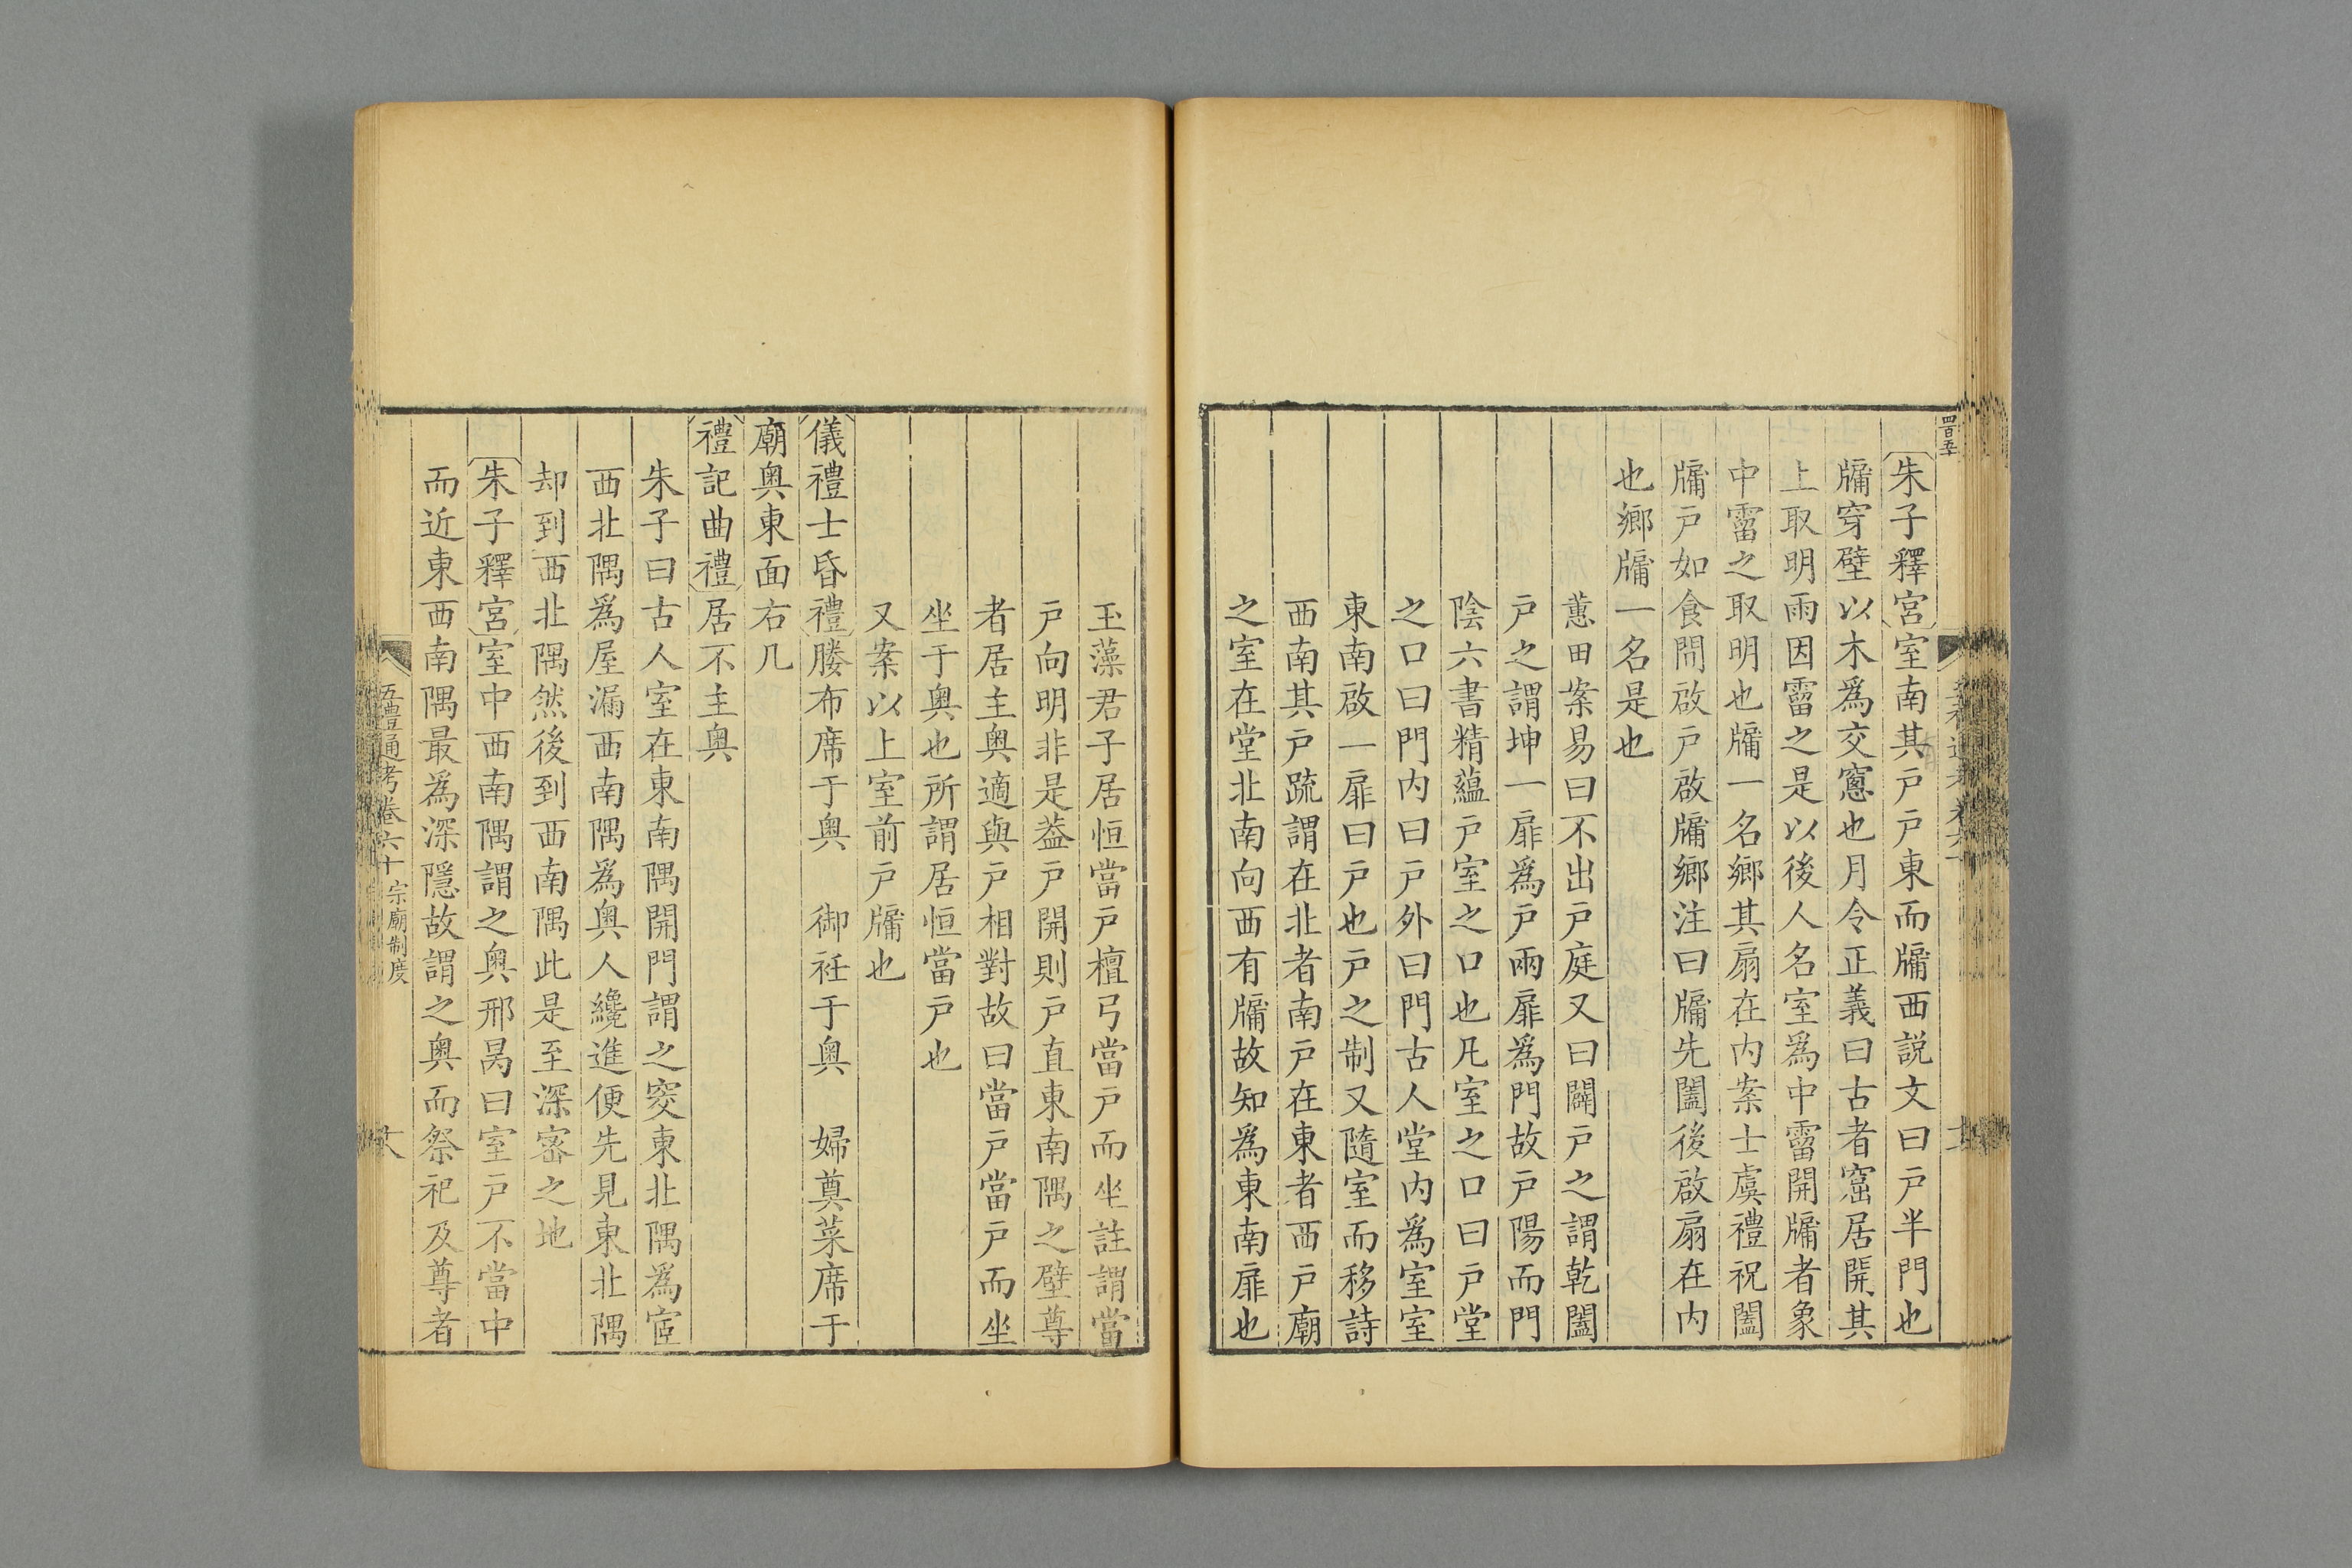 四百五十
朱子釋宮室南其戸戸東而牖西説文曰戸半門也
牖穿壁以木為交窻也月令正義曰古者窟居開其
上取明雨因霤之是以後人名室為中霤開牖者象
中霤之取明也牖一名鄉其扇在内案士虞禮祝闔
牖戸如食閒啟戸啟牖鄉注曰牖先闔後啟扇在内
也鄉牖一名是也
蕙田案易曰不出戸庭又曰闢戸之謂乾闔
戸之謂坤一扉為戸兩扉為門故戸陽而門
陰六書精蘊戸室之口也凡室之口曰戸堂
之口曰門内曰戸外曰門古人堂内為室室
東南啟一扉曰戸也戸之制又隨室而移詩
西南其戸疏謂在北者南戸在東者西戸廟
之室在堂北南向西有牖故知為東南扉也
玉藻君子居恒當戸檀弓當戸而坐註謂當
戸向明非是葢戸開則戸直東南隅之壁尊
者居主奥適與戸相對故曰當戸當戸而坐
坐于奥也所謂居恒當戸也
又案以上室前戸牖也
儀禮士昏禮媵布席于奥　御衽于奥　婦奠菜席于
廟奥東面右几
禮記曲禮居不主奥
朱子曰古人室在東南隅開門謂之窔東北隅為宧
西北隅為屋漏西南隅為奥人纔進便先見東北隅
却到西北隅然後到西南隅此是至深密之地
朱子釋宮室中西南隅謂之奥邢昺曰室戸不當中
而近東西南隅最為深隱故謂之奥而祭祀及尊者
五禮通考卷六十　宗廟制度